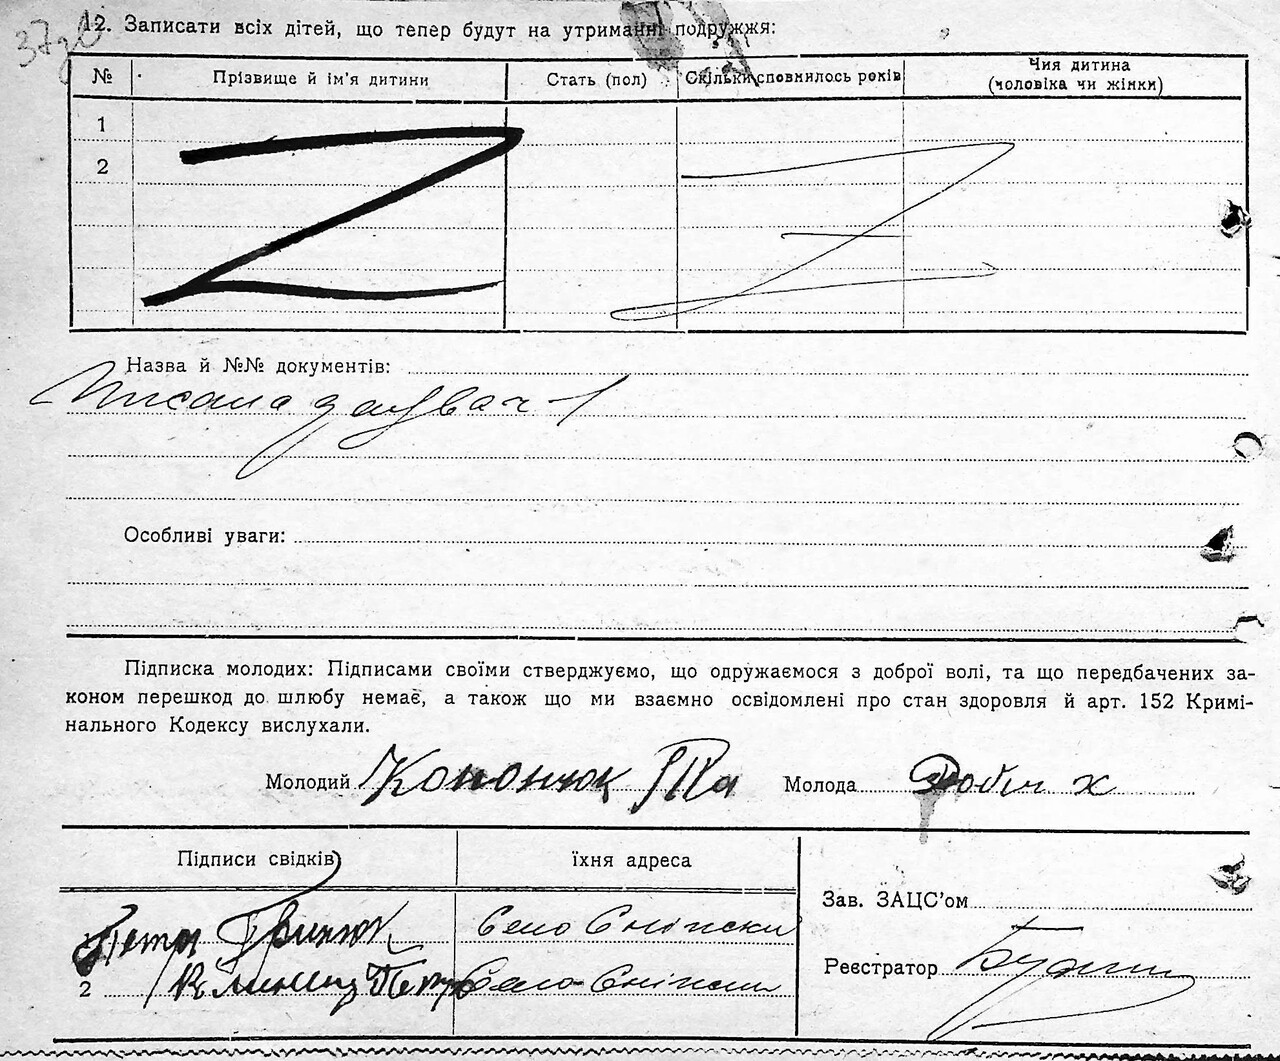 12. Записати всіх дітей, що тепер будут на утриманні подружжя:
№ Прізвище й ім’я дитини Стать (пол) Скільки сповнилось років Чия дитина
(чоловіка чи жінки)
1
2
Назва й №№ документів:
Особливі уваги:
Підписка молодих: Підписами своїми стверджуємо, що одружаємося з доброї волі, та що передбачених за-
коном перешкод до шлюбу немає, а також що ми взаємно освідомлені про стан здоровля й арт. 152 Кримі-
нального Кодексу вислухали.
Молодий Кононюк Молода
Підписи свідків їхня адреса
Зав. ЗАЦС’ом
Петро Гринюк Село
Реєстратор
2 Петро Село